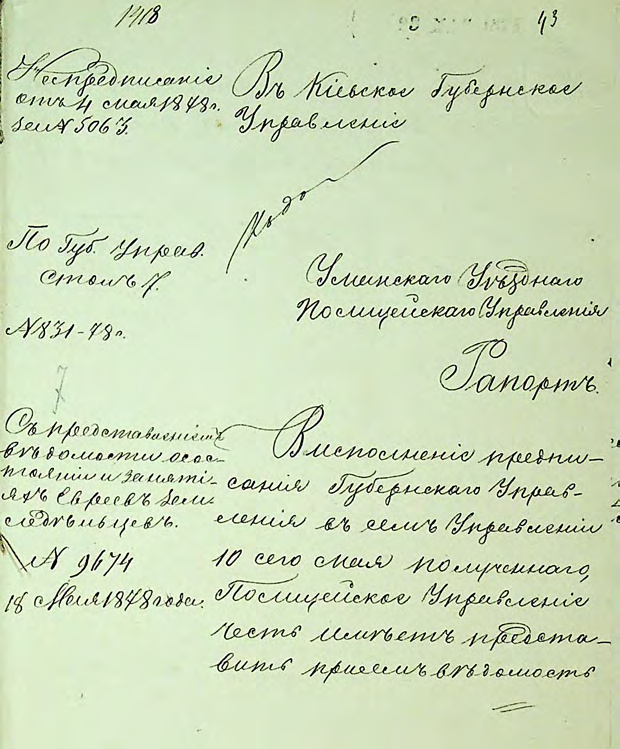 1918
43
На предписаніе
отъ 4 мая 1878 г.
за № 5063.
Въ Кіевское Губернское
Управленіе
По Губ. Управ.
столъ 7.
№ 831-78 г.
7
Уманскаго Уѣзднаго
Полицейскаго Управленія
Рапортъ.
Съ представленіемъ
вѣдомости о сос-
тояніи и заняті-
яхъ Евреевъ зем-
ледѣльцевъ.
№ 9674
18 Мая 1878 года.
Въ исполненіе предпи-
санія Губернскаго Управ-
ленія въ семъ Управленіи
10 сего мая полученнаго,
Полицейское Управленіе
честь имѣетъ предста-
вить при семъ вѣдомость